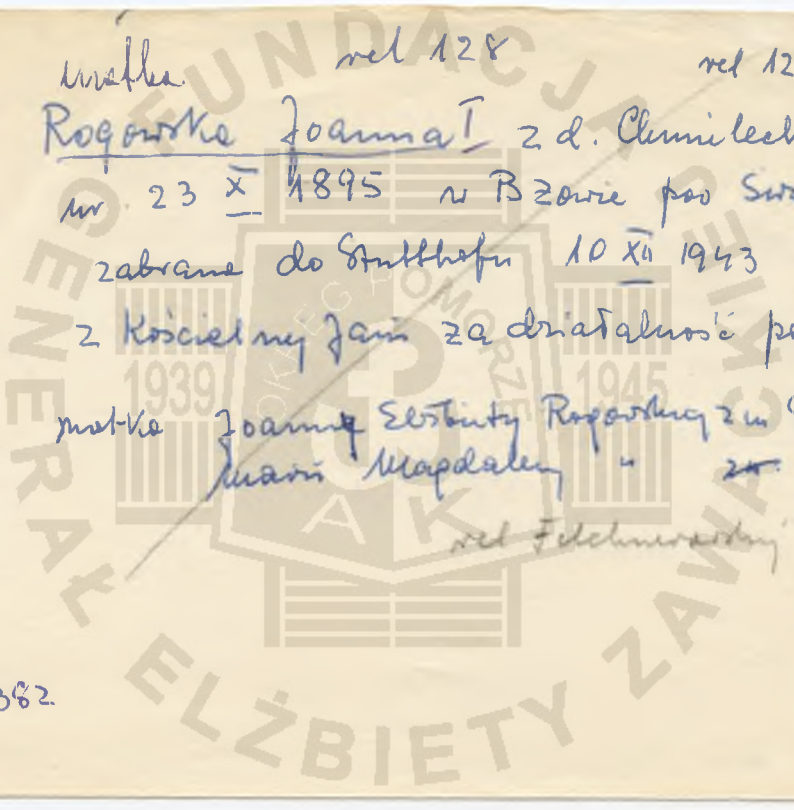 matka. rel 128 rel 12
Rogowska Joanna I z d. Chmielech
ur. 23 X 1895 w Bzowie pow Św
zabrana do Stutthofu 10 XII 1943
z Kościelnej Jani za działalność
matka Joanny Elżbiety Rogowskiej zm
Marii Magdaleny "
rel Felchnerowskiej
382
FUNDACJA GENERAŁ ELŻBIETY ZAWACKIEJ
OKRĘG POMORZE
1939 1945
AK